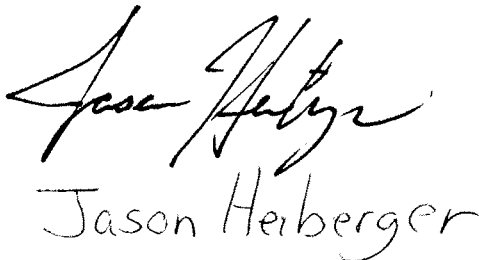 Jason Heiberger
Jason Heiberger